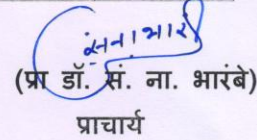 (प्रा डॉ. सं. ना. भारंबे)
प्राचार्य